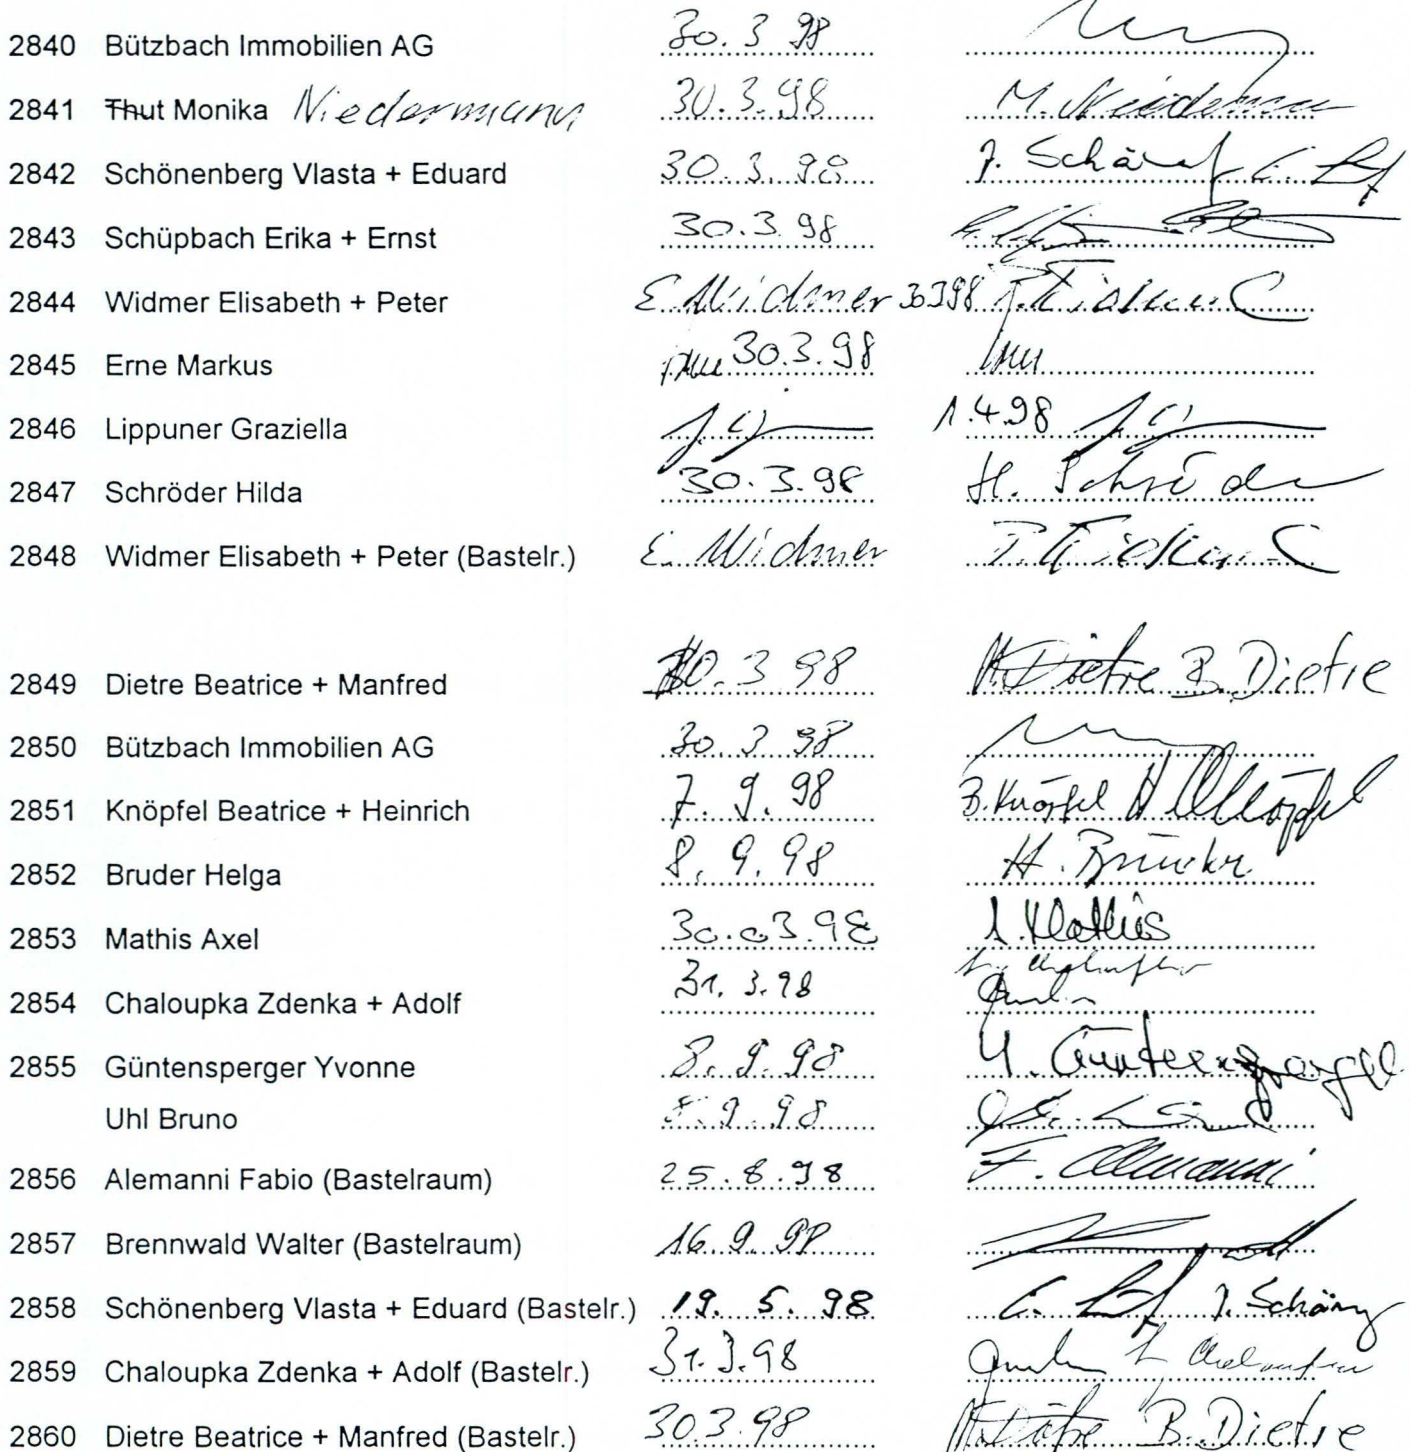 2840 Bützbach Immobilien AG 30. 3 98
2841 Thut Monika Niedermann 30.3.98 M. Niedermann
2842 Schönenberg Vlasta + Eduard 30.3.98
2843 Schüpbach Erika + Ernst 30.3.98
2844 Widmer Elisabeth + Peter E. Widmer 30398
2845 Erne Markus 30.3.98
2846 Lippuner Graziella 1.4.98
2847 Schröder Hilda 30.3.98 H. Schröder
2848 Widmer Elisabeth + Peter (Bastelr.) E. Widmer
2849 Dietre Beatrice + Manfred 30.3 98 M. Dietre B. Dietre
2850 Bützbach Immobilien AG 30. 3 98
2851 Knöpfel Beatrice + Heinrich 7. 9. 98 B. Knöpfel H Knöpfel
2852 Bruder Helga 8. 9. 98 H. Bruder
2853 Mathis Axel 30.03.98 A. Mathis
2854 Chaloupka Zdenka + Adolf 31. 3. 98
2855 Güntensperger Yvonne 8. 9. 98 Y. Güntensperger
Uhl Bruno 8. 9. 98
2856 Alemanni Fabio (Bastelraum) 25. 8. 98 F. Alemanni
2857 Brennwald Walter (Bastelraum) 16. 9. 98
2858 Schönenberg Vlasta + Eduard (Bastelr.) 19. 5. 98
2859 Chaloupka Zdenka + Adolf (Bastelr.) 31.3.98
2860 Dietre Beatrice + Manfred (Bastelr.) 30.3.98 M. Dietre B. Dietre